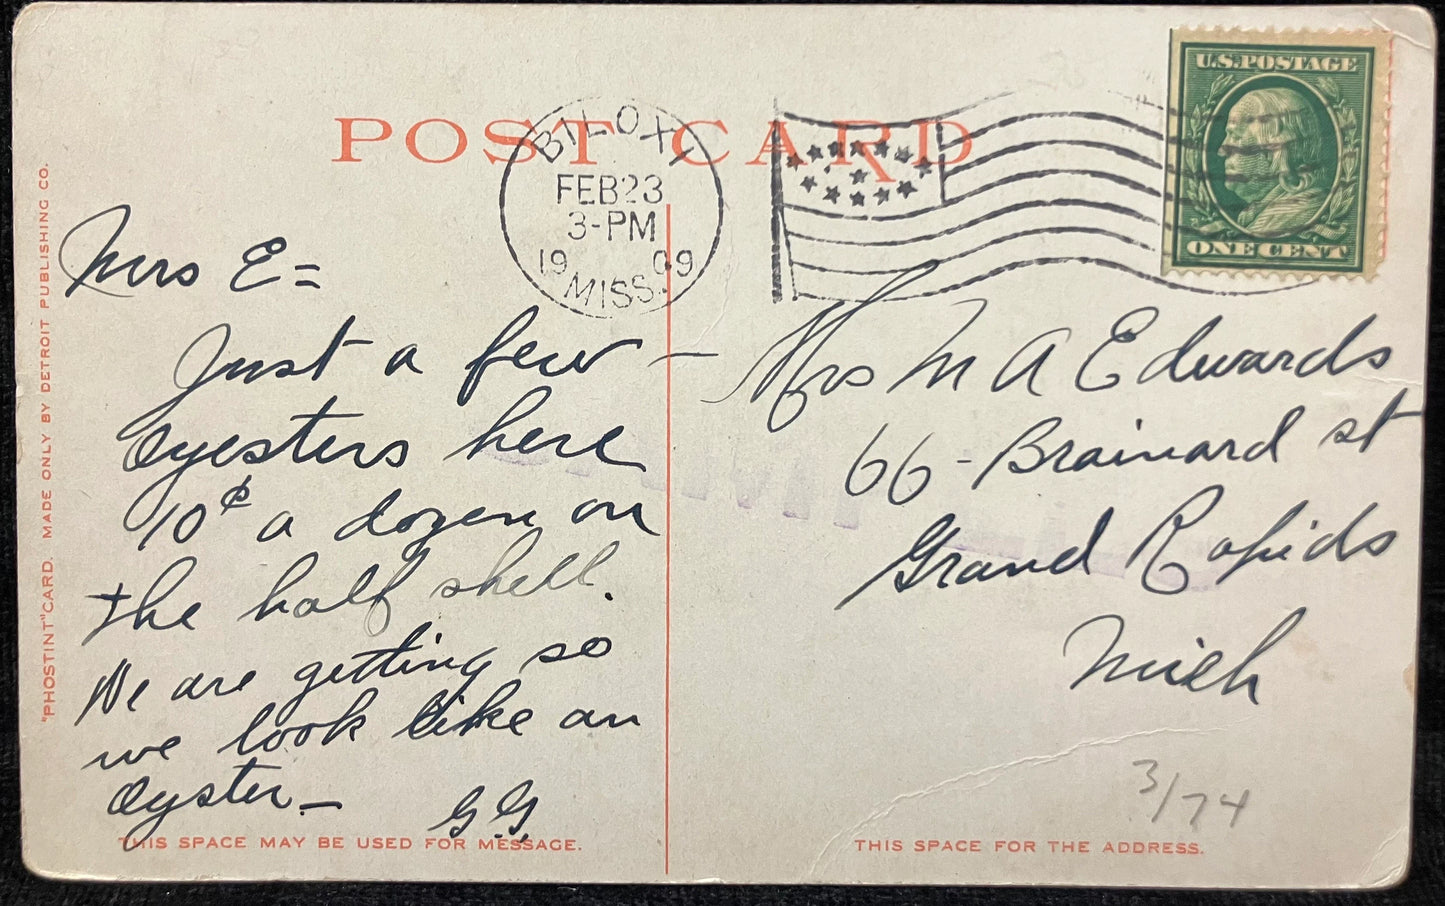 U.S. POSTAGE
ONE CENT
POST CARD
BILOXI
FEB 23
3-PM
1909
MISS.
"PHOSTINT" CARD. MADE ONLY BY DETROIT PUBLISHING CO.
Mrs E=
Just a few –
Oyesters here
10¢ a dozen on
the half shell.
We are getting so
we look like an
Oyster –
G.G.
THIS SPACE MAY BE USED FOR MESSAGE.
Mrs M A Edwards
66 - Brainard st
Grand Rapids
Mich
3/74
THIS SPACE FOR THE ADDRESS.